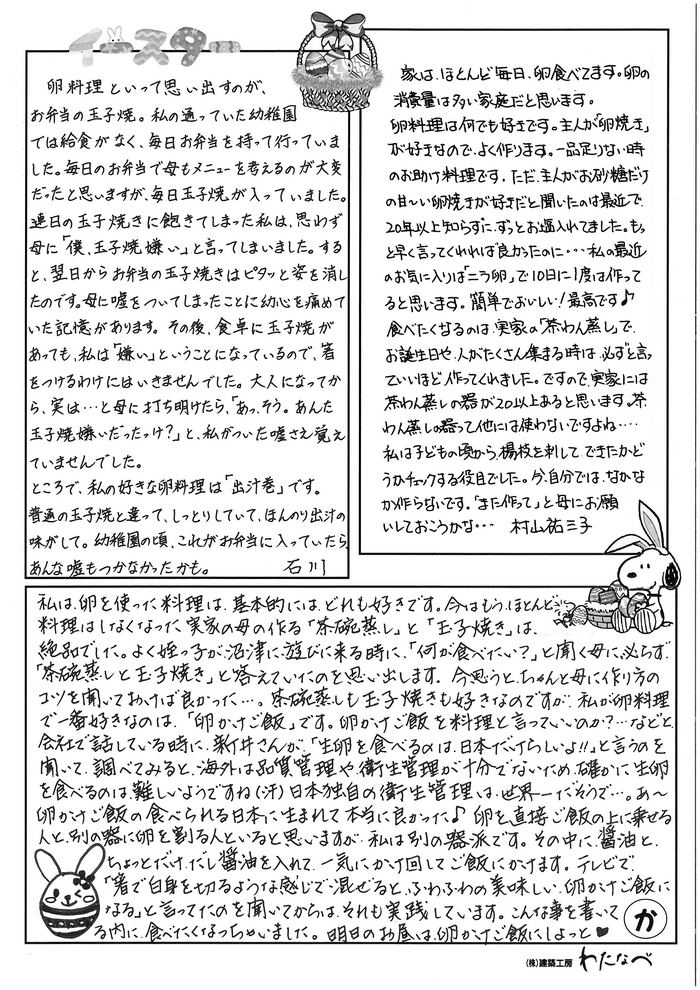 イースター
卵料理といって思い出すのが、
お弁当の玉子焼。私の通っていた幼稚園
では給食がなく、毎日お弁当を持って行っていま
した。毎日のお弁当で母もメニューを考えるのが大変
だったと思いますが、毎日玉子焼が入っていました。
連日の玉子焼きに飽きてしまった私は、思わず
母に「僕、玉子焼嫌い」と言ってしまいました。する
と、翌日からお弁当の玉子焼きはピタッと姿を消し
たのです。母に嘘をついてしまったことに幼心を痛めて
いた記憶があります。その後、食卓に玉子焼が
あっても、私は「嫌い」ということになっているので、箸
をつけるわけにはいきませんでした。大人になってか
ら、実は…と母に打ち明けたら、「あっ、そう。あんた
玉子焼嫌いだったっけ?」と、私がついた嘘さえ覚え
ていませんでした。
ところで、私の好きな卵料理は「出汁巻」です。
普通の玉子焼と違って、しっとりしていて、ほんのり出汁の
味がして。幼稚園の頃、これがお弁当に入っていたら、
あんな嘘もつかなかったかも。 石川
家は、ほとんど毎日、卵食べてます。卵の
消費量は多い家庭だと思います。
卵料理は何でも好きです。主人が「卵焼き」
が好きなので、よく作ります。一品足りない時
のお助け料理です。ただ、主人がお砂糖だけ
の甘〜い卵焼きが好きだと聞いたのは最近で、
20年以上知らずに、ずっとお塩入れてました。もっ
と早く言ってくれれば良かったのに・・・私の最近
のお気に入りは「ニラ卵」で10日に1度は作って
ると思います。簡単でおいしい!最高です♪
食べたくなるのは、実家の「茶わん蒸し」で、
お誕生日や、人がたくさん集まる時は、必ずと言っ
ていいほど作ってくれました。ですので、実家には
茶わん蒸しの器が20以上あると思います。茶
わん蒸しの器って他には使わないですよね・・・・
私は子どもの頃から、楊枝を刺して、できたかど
うかチェックする役目でした。今、自分では、なかな
か作らないです。「また作って」と母にお願
いしておこうかな・・・ 村山祐三子
私は、卵を使った料理は、基本的にはどれも好きです。今はもう、ほとんど
料理はしなくなった実家の母の作る「茶碗蒸し」と「玉子焼き」は、
絶品でした。よく姪っ子が沼津に遊びに来る時に、「何が食べたい?」と聞く母に、必らず
「茶碗蒸しと玉子焼き」と答えていたのを思い出します。今思うと、ちゃんと母に作り方の
コツを聞いておけば良かった…。茶碗蒸しも玉子焼きも好きなのですが、私が卵料理
で一番好きなのは、「卵かけご飯」です。卵かけご飯を料理と言っていいのか?…などと
会社で話している時に、新井さんが、「生卵を食べるのは、日本だけらしいよ!!」と言うのを
聞いて、調べてみると、海外は品質管理や、衛生管理が十分でないため、確かに生卵
を食べるのは、難しいようですね(汗)日本独自の衛生管理は、世界一だそうで…。あ〜
卵かけご飯の食べられる日本に生まれて本当に良かった♪ 卵を直接ご飯の上に乗せる
人と、別の器に卵を割る人といると思いますが、私は別の器派です。その中に、醤油と、
ちょっとだけ、だし醤油を入れて、一気にかけ回してご飯にかけます。テレビで、
「箸で白身を切るような感じで混ぜると、ふわふわの美味しい卵かけご飯に
なる」と言ってたのを聞いてからは、それも実践しています。こんな事を書いて
る内に、食べたくなっちゃいました。明日のお昼は、卵かけご飯にしよっと♥
か
(株)建築工房 わたなべ